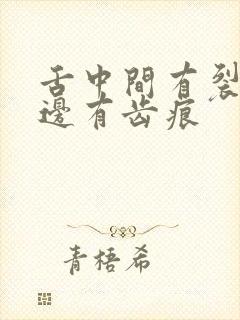 舌中間有裂
邊有齿痕
青梧希